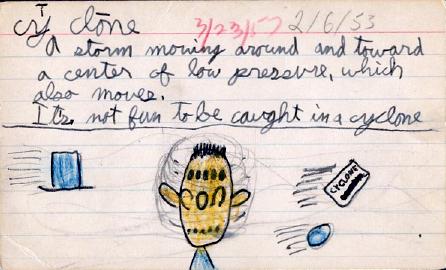 cȳ clōne 3/23/57 2/6/53
A storm moving around and toward
a center of low pressure, which
also moves.
It's not fun to be caught in a cyclone
CYCLONE